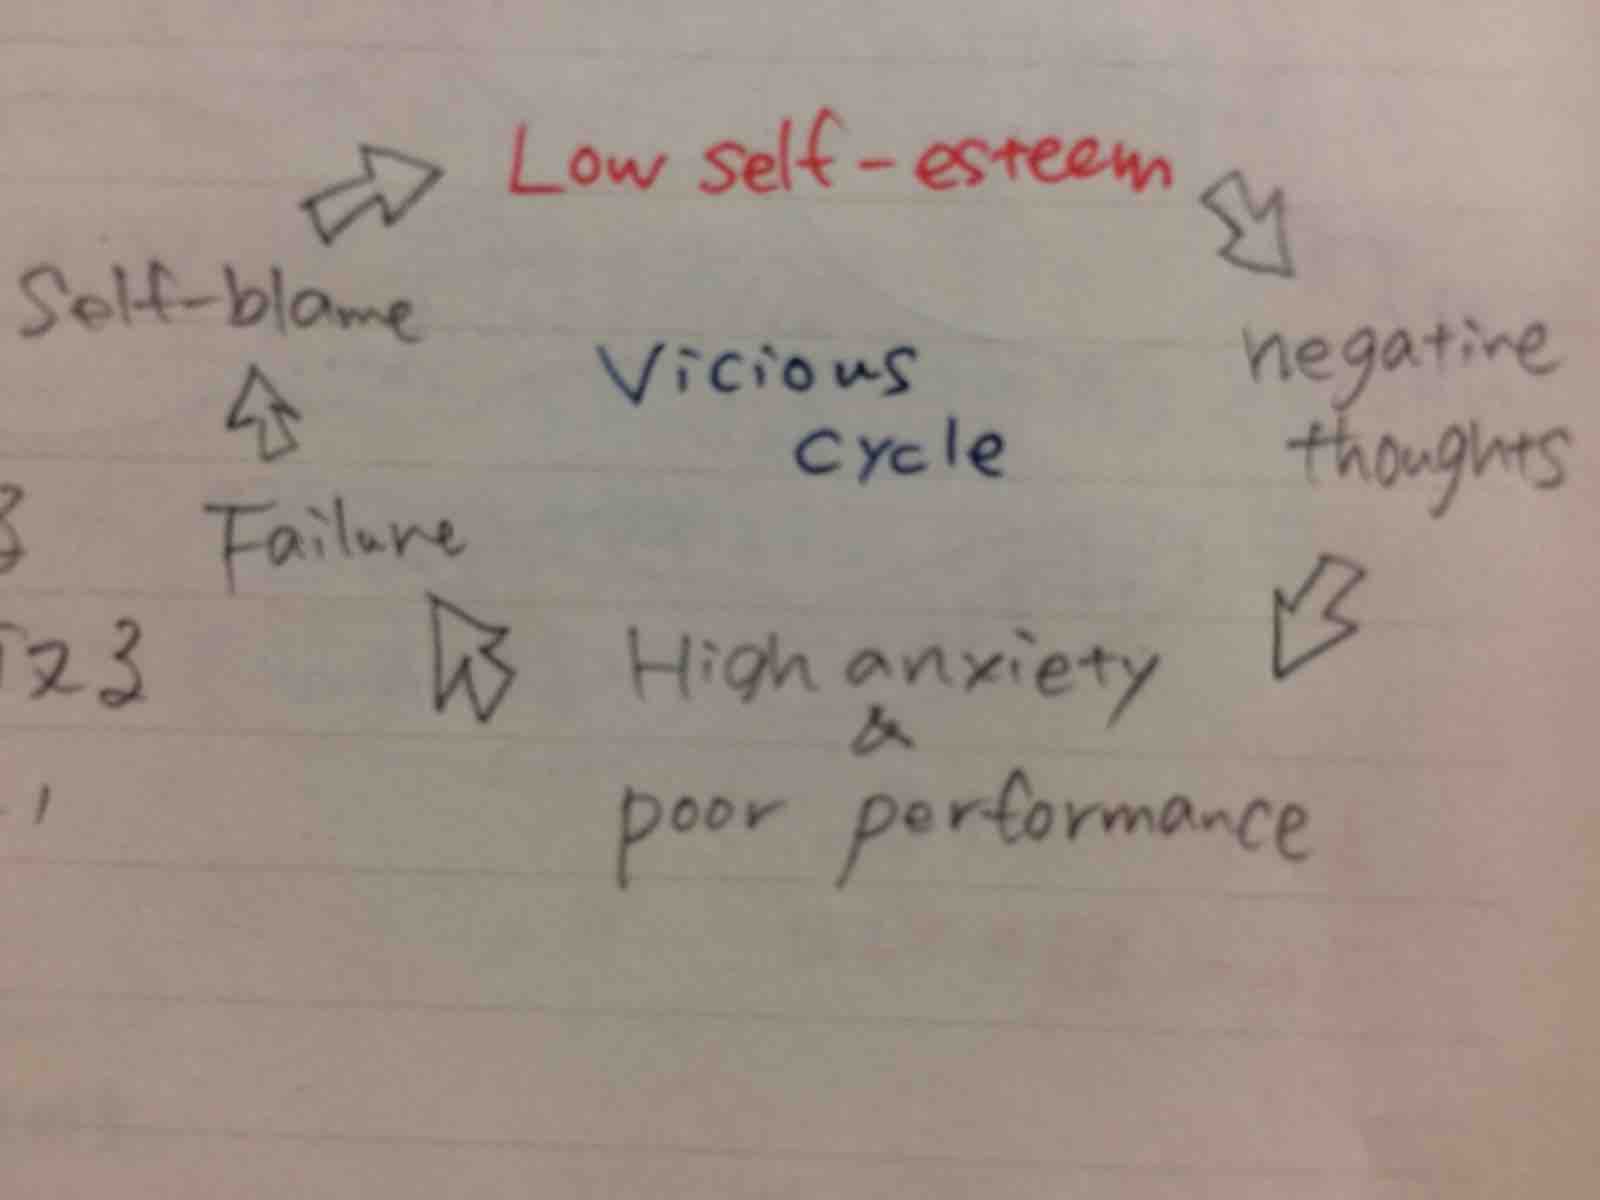 Low self-esteem
Self-blame
Vicious
cycle
negative
thoughts
Failure
High anxiety
&
poor performance